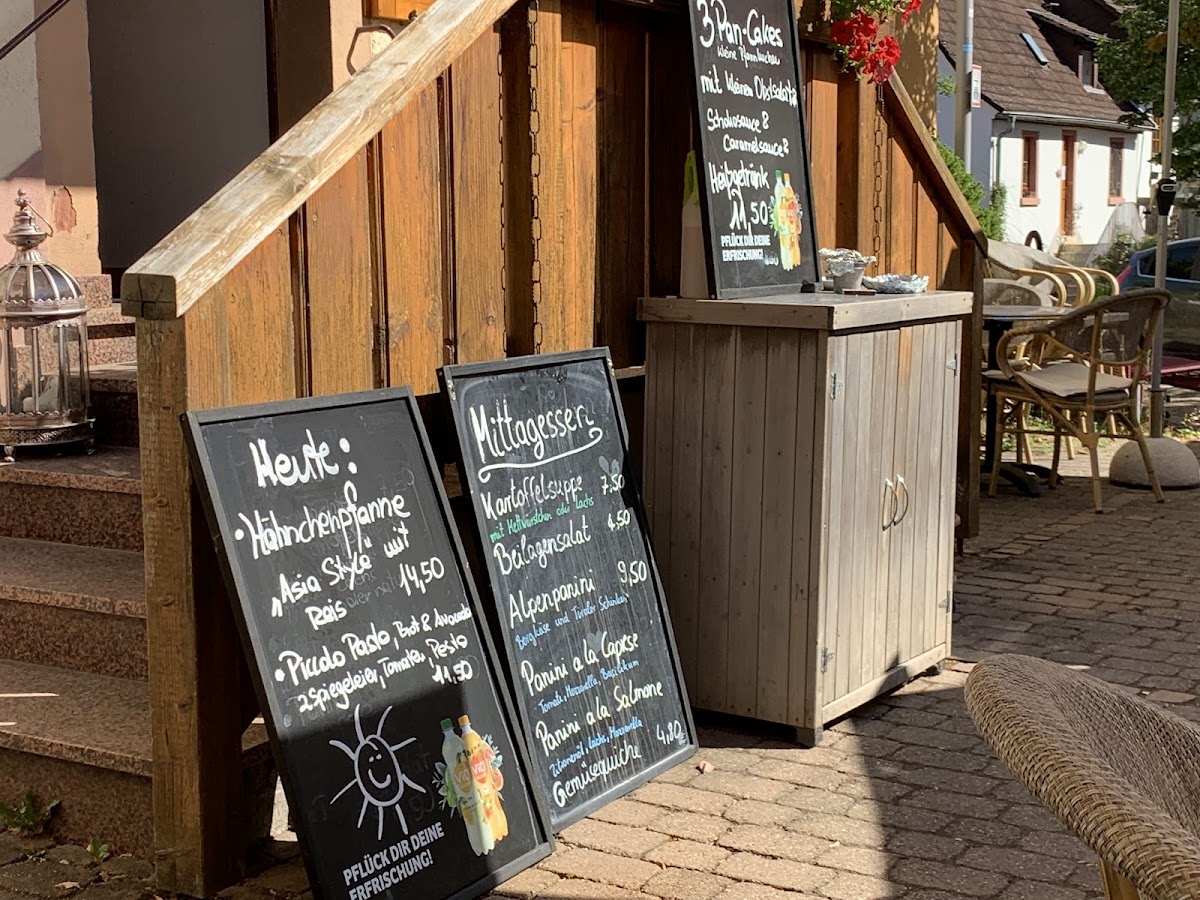 3 Pan-Cakes
kleine Pfannkuchen
mit kleinem Obstsalat
Schokosauce &
Caramelsauce &
Heißgetränk
11,50
PFLÜCK DIR DEINE
ERFRISCHUNG!
Heute:
• Hähnchenpfanne
"Asia Style" mit
Reis 14,50
• Piccolo Paolo, Brot & Avocado
2 Spiegeleier, Tomaten, Pesto
11,50
ViO
ViO
PFLÜCK DIR DEINE
ERFRISCHUNG!
Mittagessen
Kartoffelsuppe 7,50
mit Mettwürstchen oder Lachs
Beilagensalat 4,50
Alpenpanini 9,50
Bergkäse und Tiroler Schinken
Panini a la Caprese
Tomate, Mozzarella, Basilikum
Panini a la Salmone
Zitronenöl, Lachs, Mozzarella
Gemüsequiche 4,80